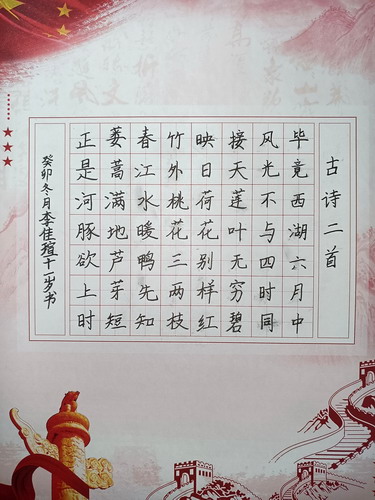 古诗二首
毕竟西湖六月中
风光不与四时同
接天莲叶无穷碧
映日荷花别样红
竹外桃花三两枝
春江水暖鸭先知
蒌蒿满地芦芽短
正是河豚欲上时
癸卯冬月李佳瑄十一岁书